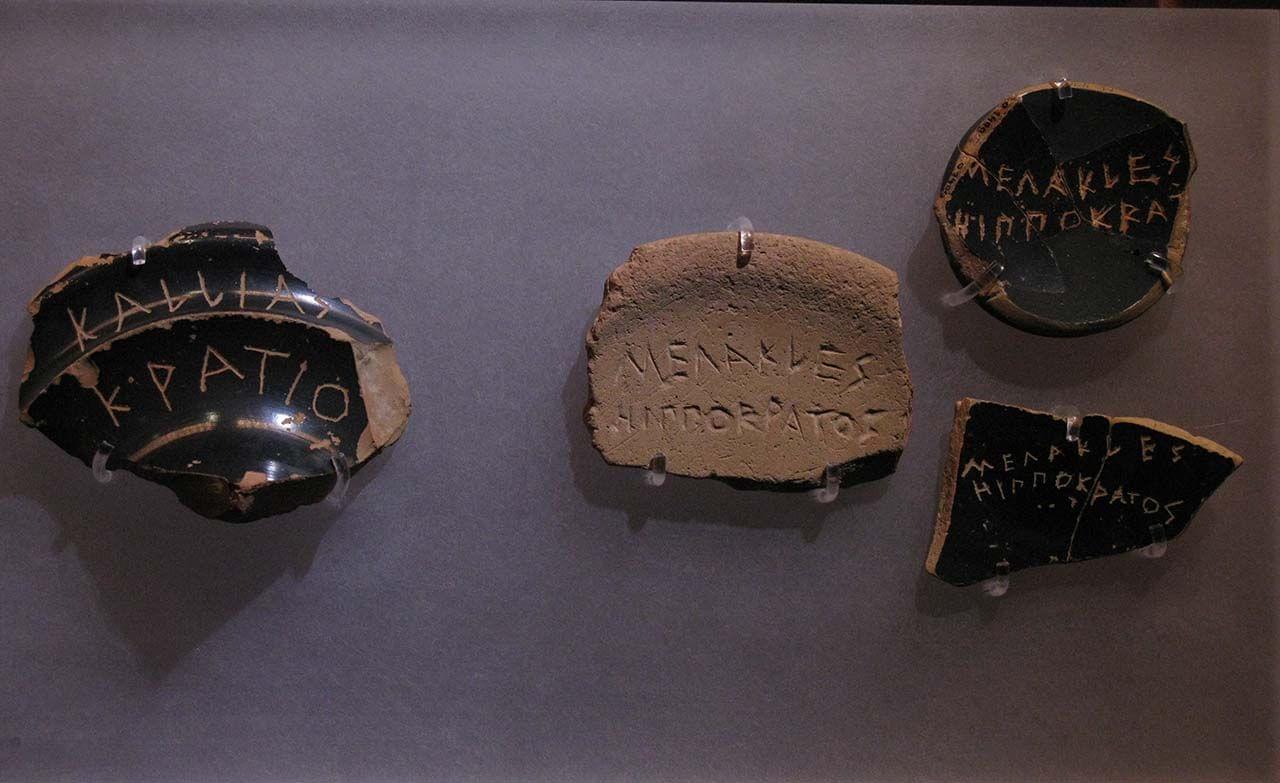 ΚΑLLΙΑΣ
ΚΡΑΤΙΟ
ΜΕΛΑΚLΕΣ
ΗΙΠΠΟΚΡΑΤΟΣ
ΜΕΛΑΚLΕΣ
ΗΙΠΠΟΚΡΑ
ΜΕΛΑΚLΕΣ
ΗΙΠΠΟΚΡΑΤΟΣ